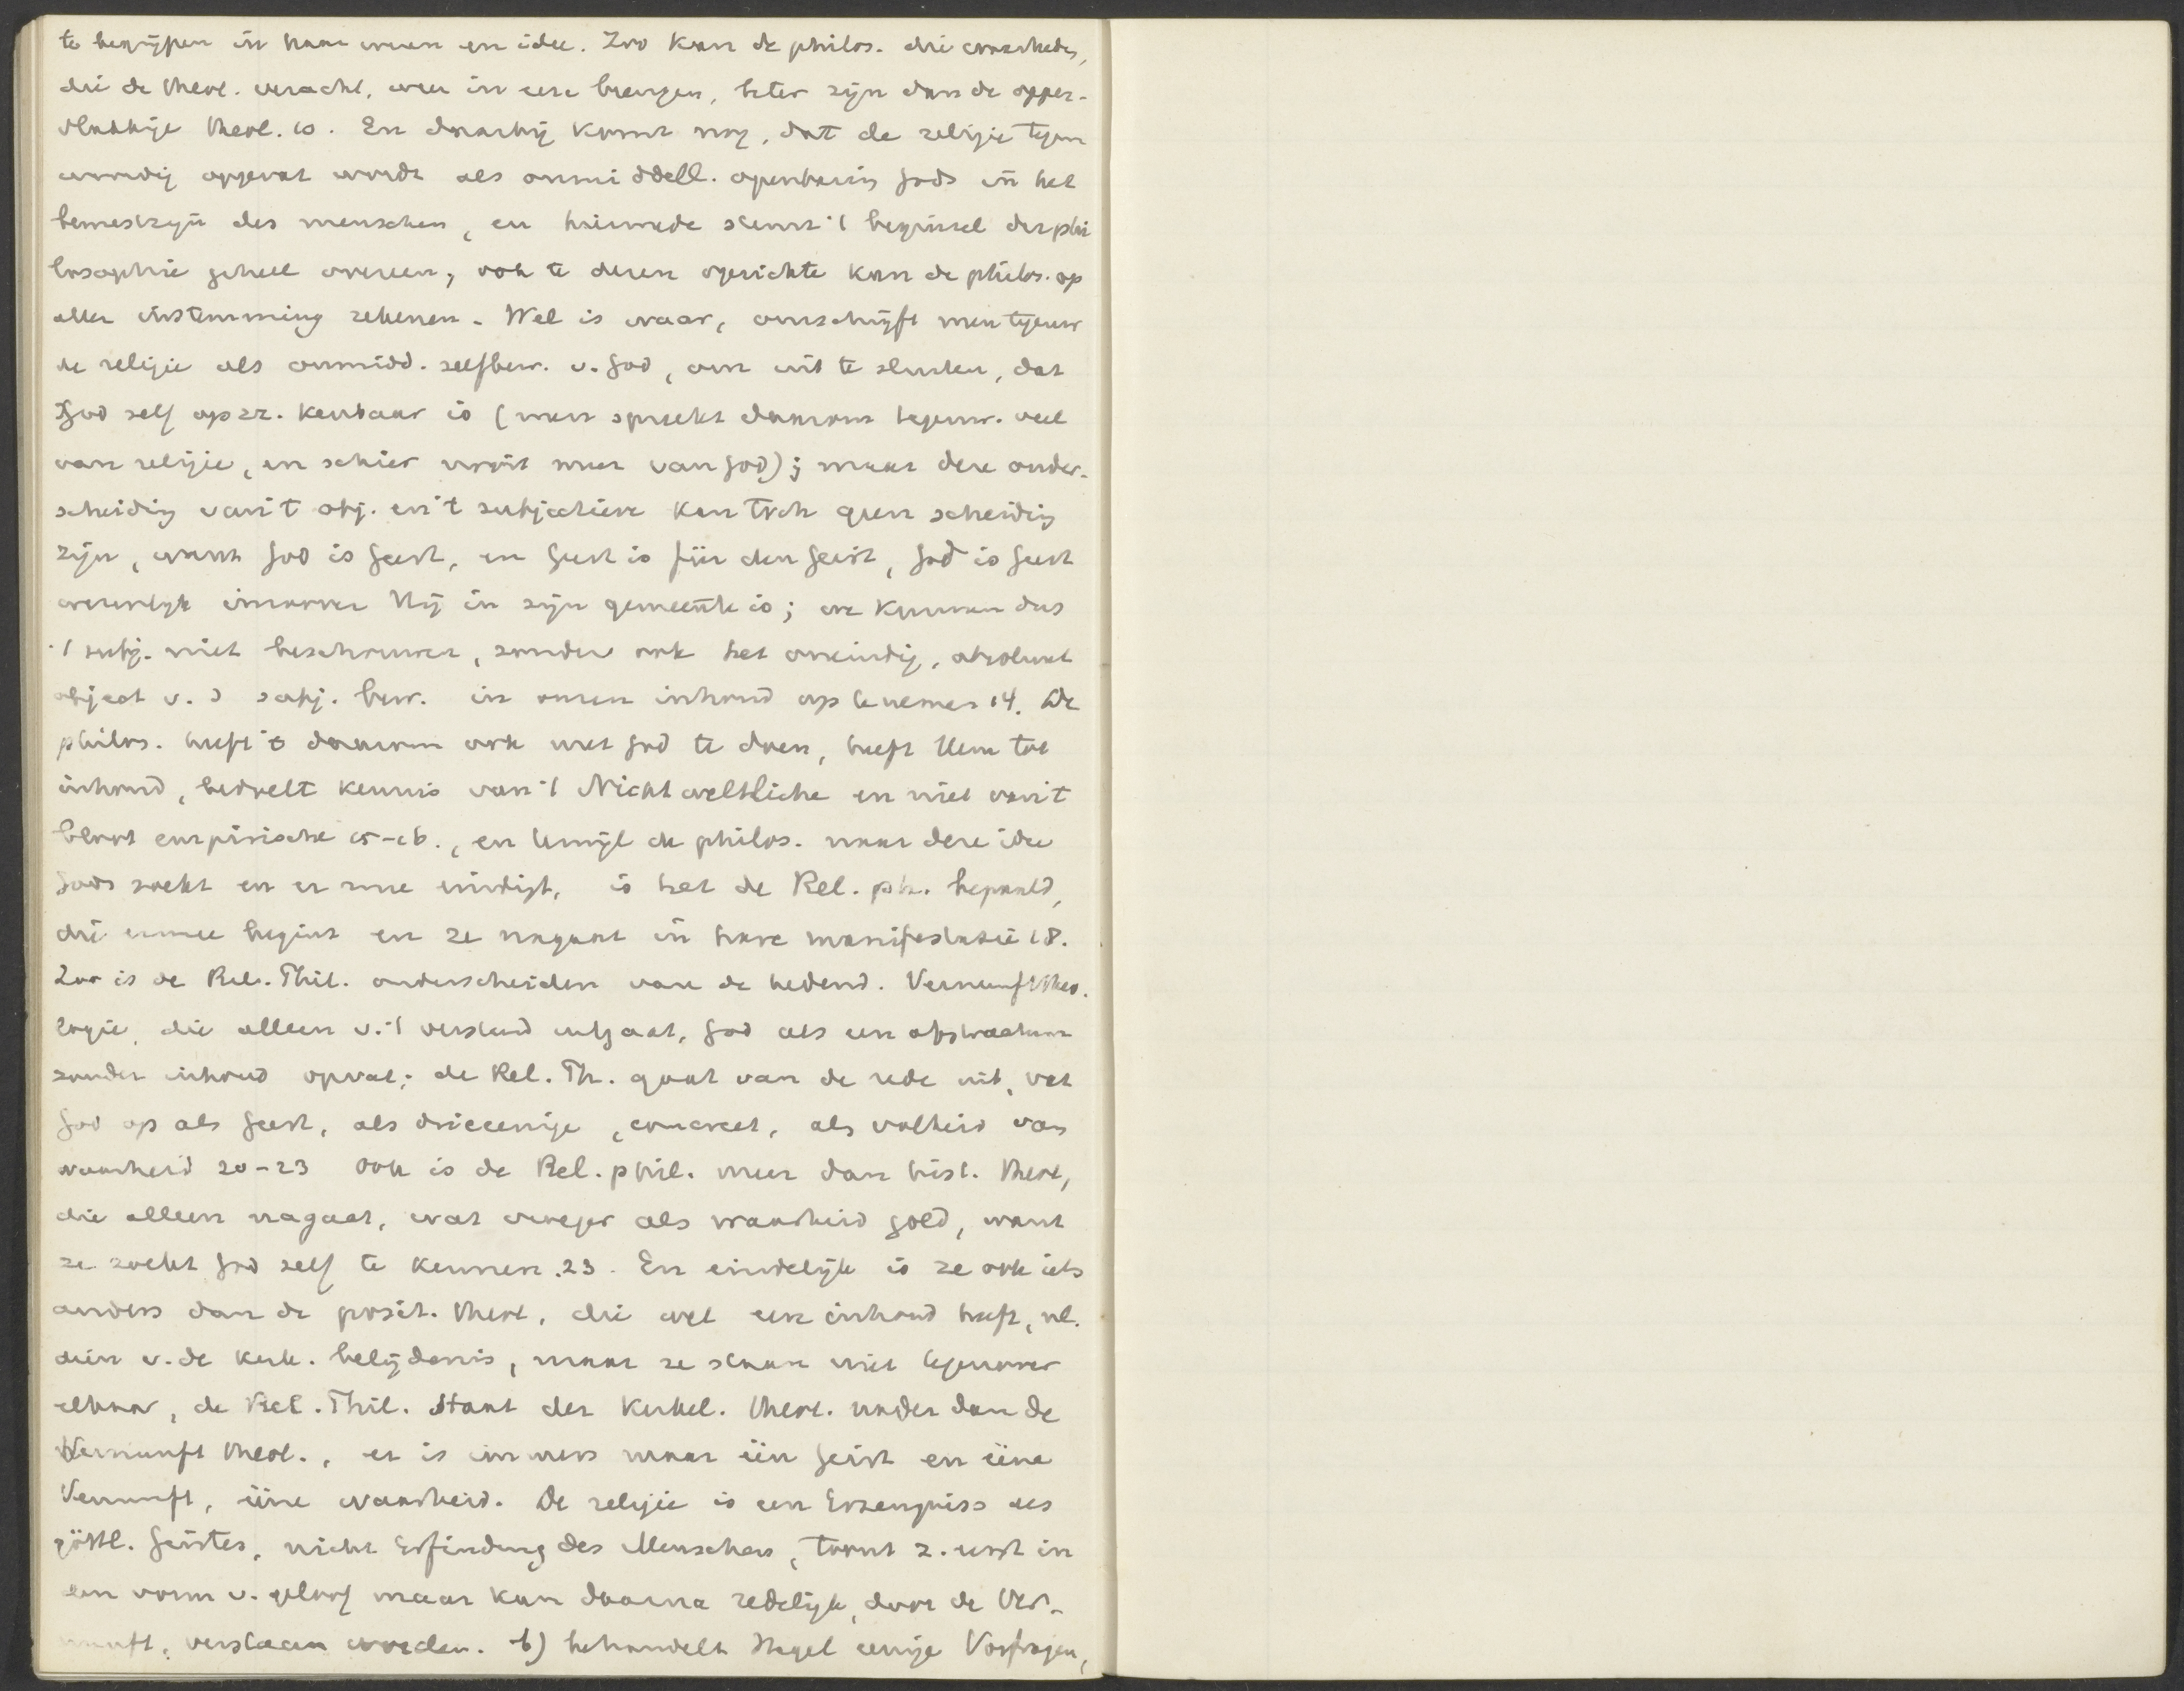 te begrijpen in haar wezen en idee. Zoo kan de philos. die waarheden,
die de theol. veracht, weer in eere brengen, beter zijn dan de opper-
vlakkige theol. 10. En daarbij komt nog, dat de religie tegen
woordig opgevat wordt als onmiddell. openbaring Gods in het
bewustzijn des menschen, en hiermede stemt 't beginsel der phi
losophie geheel overeen, ook te dezen opzichte kan de philos. op
aller instemming rekenen. Wel is waar, omschrijft men tegenw
de religie als onmidd. zelfbew. v. God, om uit te sluiten, dat
God zelf op zz. kenbaar is (men spreekt daarom tegenw. veel
van religie, en schier nooit meer van God); maar deze onder-
scheiding van 't obj. en 't subjectieve kan toch geen scheiding
zijn, want God is Geest, en Geest is für den Geist, God is Geest
wezenlijk inzoover Hij in zijn gemeente is; we kunnen dus
't subj. niet beschouwen, zonder ook het oneindig, absoluut
object v. d subj. bew. in onzen inhoud op te nemen 14. De
philos. heeft 't daarom ook met God te doen, heeft Hem tot
inhoud, bedoelt kennis van 't Nichtweltliche en niet van 't
bloot empirische 15-16., en terwijl de philos. naar deze idee
Gods zoekt en er mee eindigt, is het de Rel. ph. bepaald,
die ermee begint en ze nagaat in hare manifestatie 18.
Zoo is de Rel. Phil. onderscheiden van de hedend. Vernunfttheo.
logie, die alleen v. 't verstand uitgaat, God als een abstractum
zonder inhoud opvat; de Rel. Ph. gaat van de rede uit, vat
God op als Geest, als drieeenige, concreet, als volheid van
waarheid 20-23 Ook is de Rel. phil. meer dan hist. theol,
die alleen nagaat, wat vroeger als waarheid gold, want
ze zoekt God zelf te kennen. 23. En eindelijk is ze ook iets
anders dan de posit. theol, die wel een inhoud heeft, nl.
dien v. de kerk. belijdenis, maar ze staan niet tegenover
elkaar, de Rel. Phil. staat der kerkel. theol. nader dan de
Vernunft theol., er is immers maar één Geist en ééne
Vernunft, ééne waarheid. De religie is een Erzeugniss des
göttl. Geistes, nicht Erfindung des Menschen, komt z. eerst in
den vorm v. geloof maar kan daarna redelijk, door de Ver-
nunft, verstaan worden. b) behandelt Hegel eenige Vorfragen,